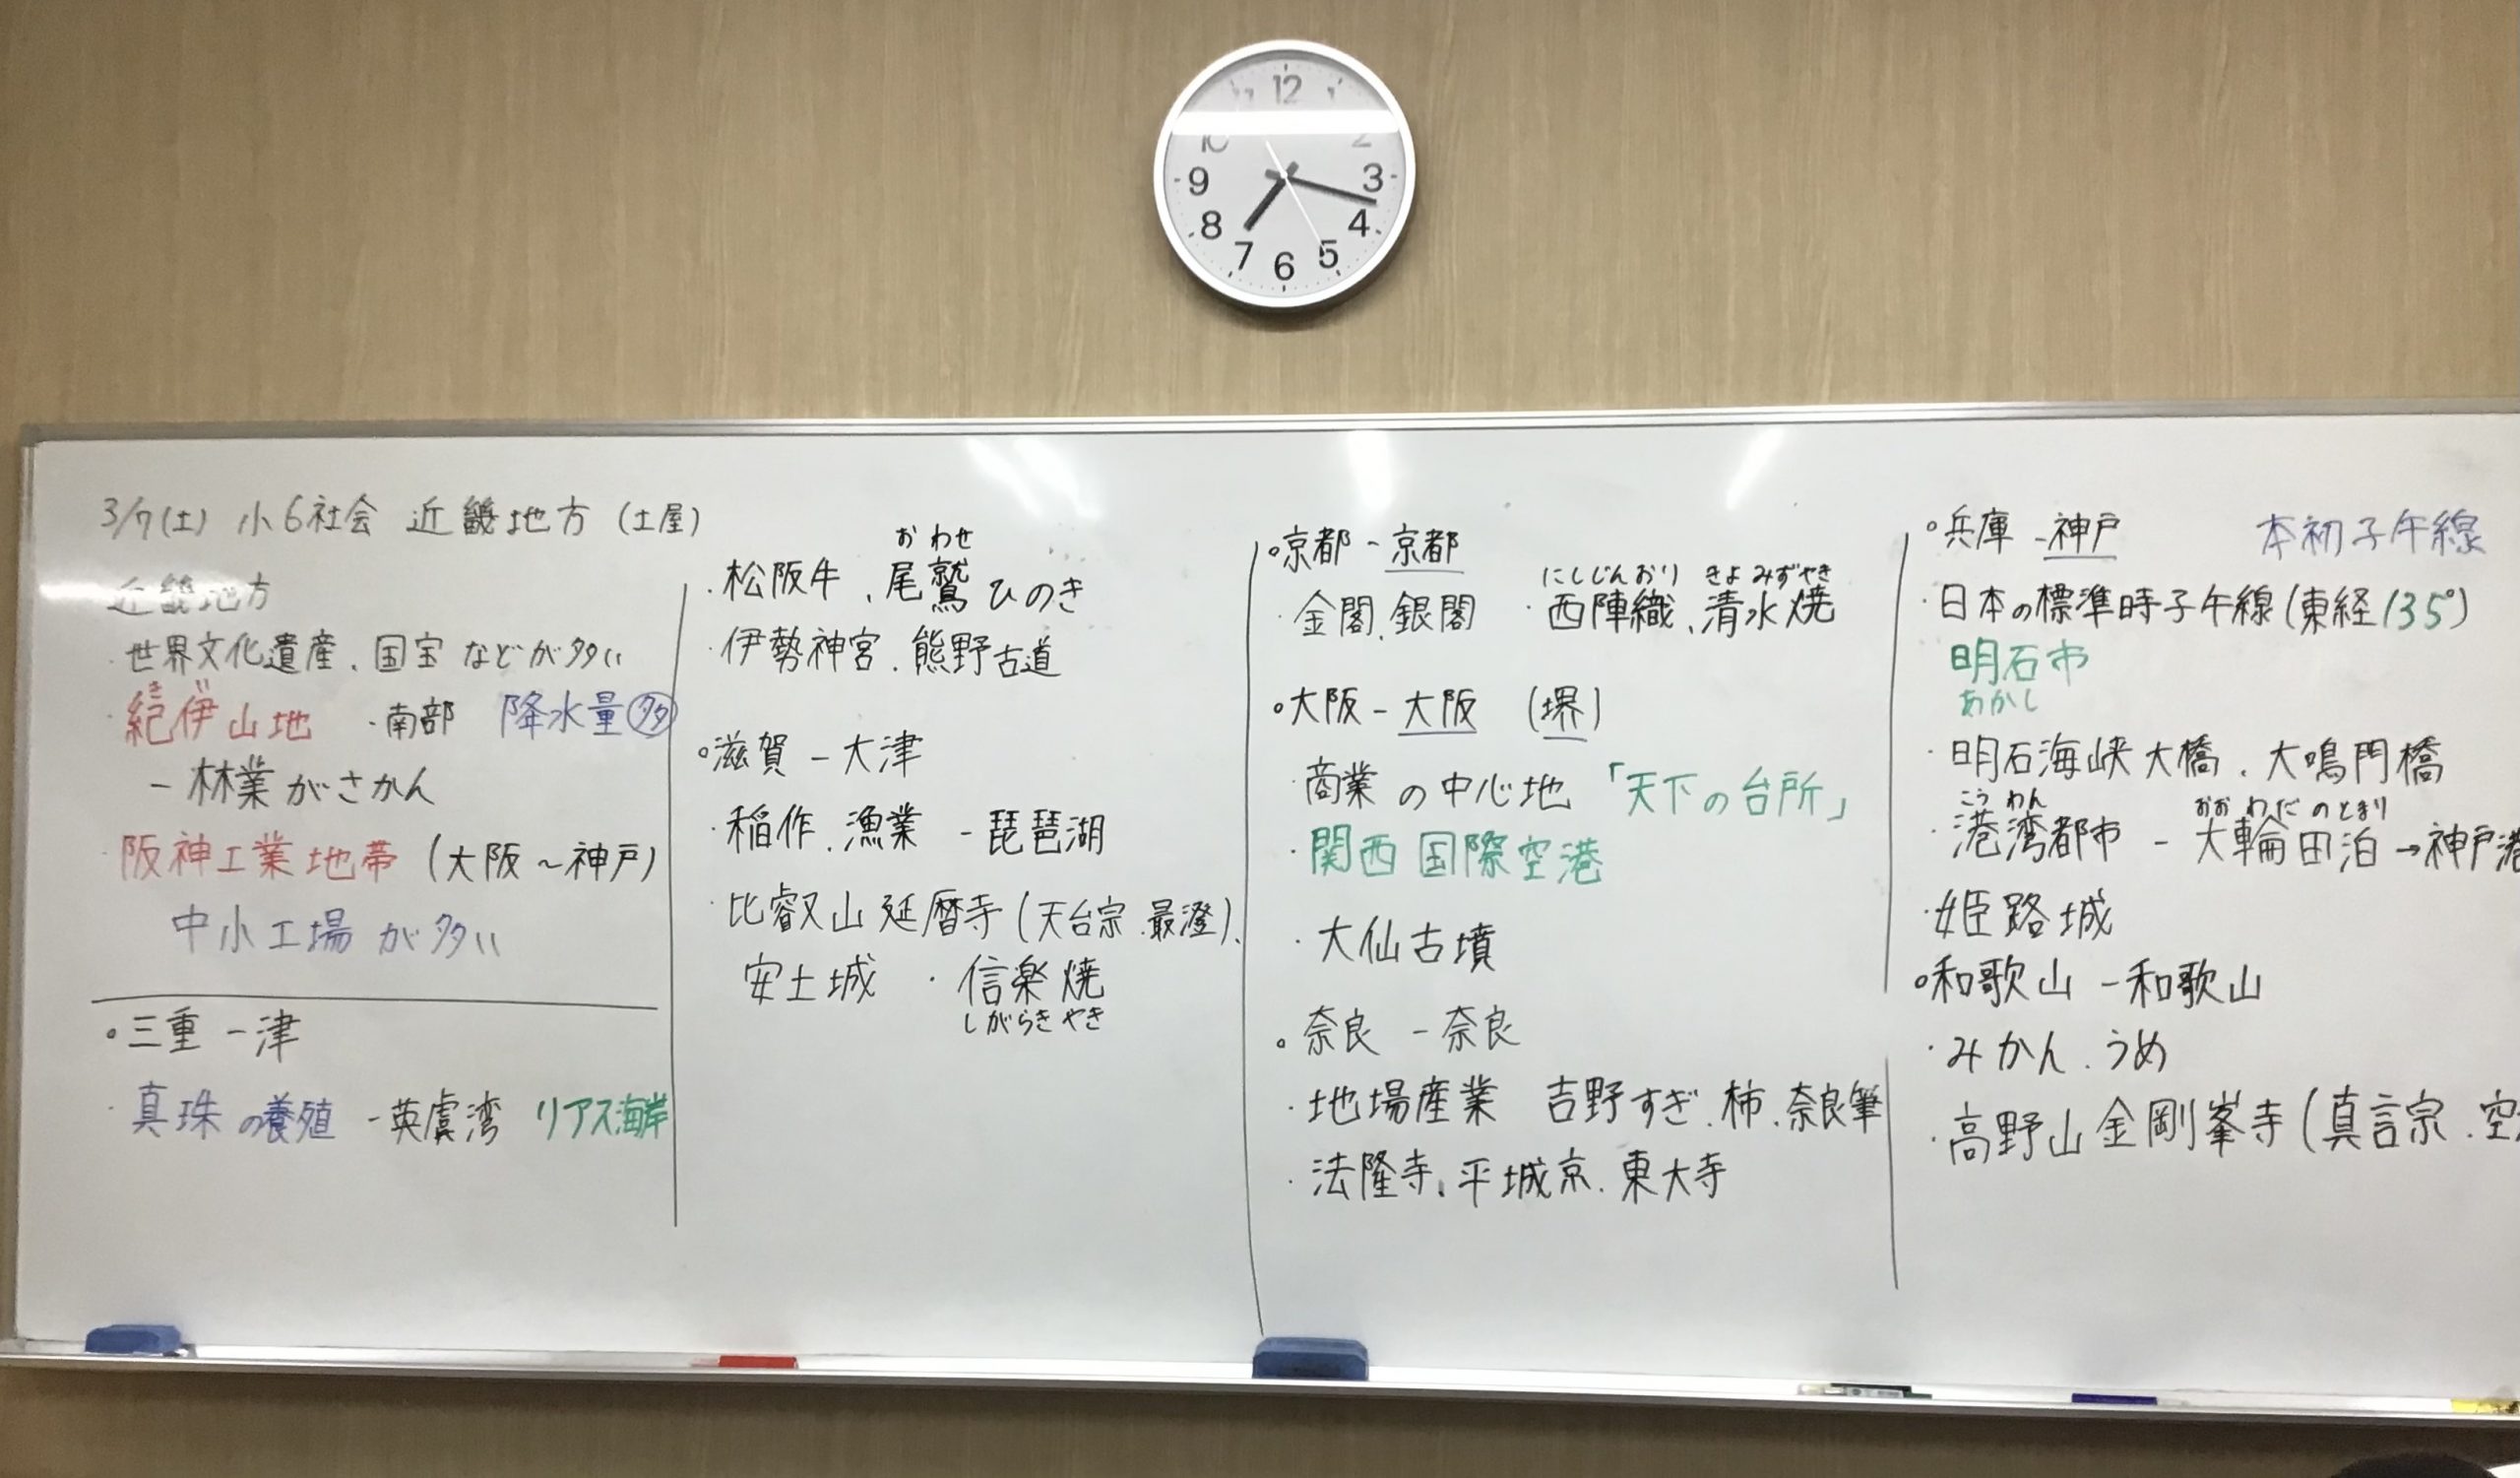 12
11
10
2
9
3
8
4
7
6
5
3/7(土) 小6社会 近畿地方 (土屋)
近畿地方
・世界文化遺産、国宝などが多い
きい
・紀伊山地 ・南部 降水量多
－林業がさかん
・阪神工業地帯 (大阪～神戸)
中小工場が多い
○三重－津
・真珠の養殖－英虞湾 リアス海岸
おわせ
・松阪牛、尾鷲ひのき
・伊勢神宮、熊野古道
○滋賀－大津
・稲作、漁業－琵琶湖
・比叡山延暦寺(天台宗、最澄)、
安土城 ・信楽焼
しがらきやき
○京都－京都
にしじんおり きよみずやき
・金閣、銀閣 ・西陣織、清水焼
○大阪－大阪 (堺)
・商業の中心地 「天下の台所」
・関西国際空港
・大仙古墳
○奈良－奈良
・地場産業 吉野すぎ、柿、奈良筆
・法隆寺、平城京、東大寺
○兵庫－神戸 本初子午線
・日本の標準時子午線(東経135°)
明石市
あかし
・明石海峡大橋、大鳴門橋
こうわん おおわだのとまり
・港湾都市－大輪田泊→神戸港
・姫路城
○和歌山－和歌山
・みかん、うめ
・高野山金剛峯寺(真言宗、空